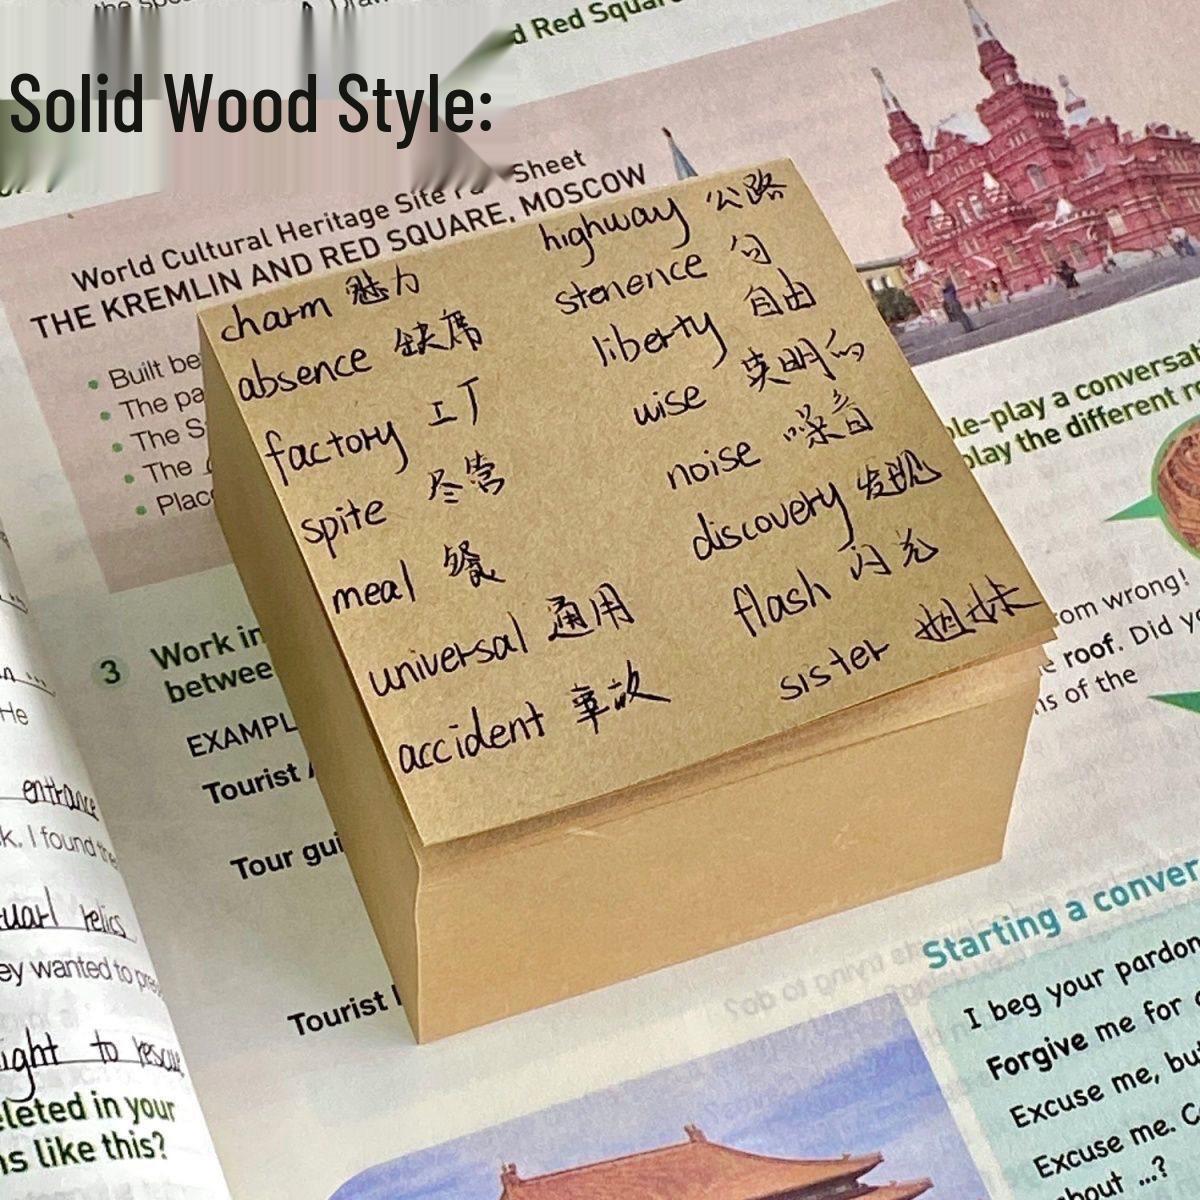 d Red Squar
Solid Wood Style:
World Cultural Heritage Site Sheet
THE KREMLIN AND RED SQUARE, MOSCOW
Built be
The pa
The S
The
Plac
charm 魅力
absence 缺席
factory 工厂
spite 尽管
meal 餐
universal 通用
accident 事故
highway 公路
stenence 句
liberty 自由
wise 英明的
noise 噪音
discovery 发现
flash 闪光
sister 姐妹
le-play a conversati
play the different r
3 Work in
betwee
EXAMPL
Tourist
Tour gui
Tourist
om wrong!
roof. Did yo
ns of the
He
entrance
k, I found the
relics
ey wanted to pre
ight to rescue
eleted in your
ns like this?
Starting a conver
I beg your pardon
Forgive me for
Excuse me, but
Excuse me. C
bout ...?